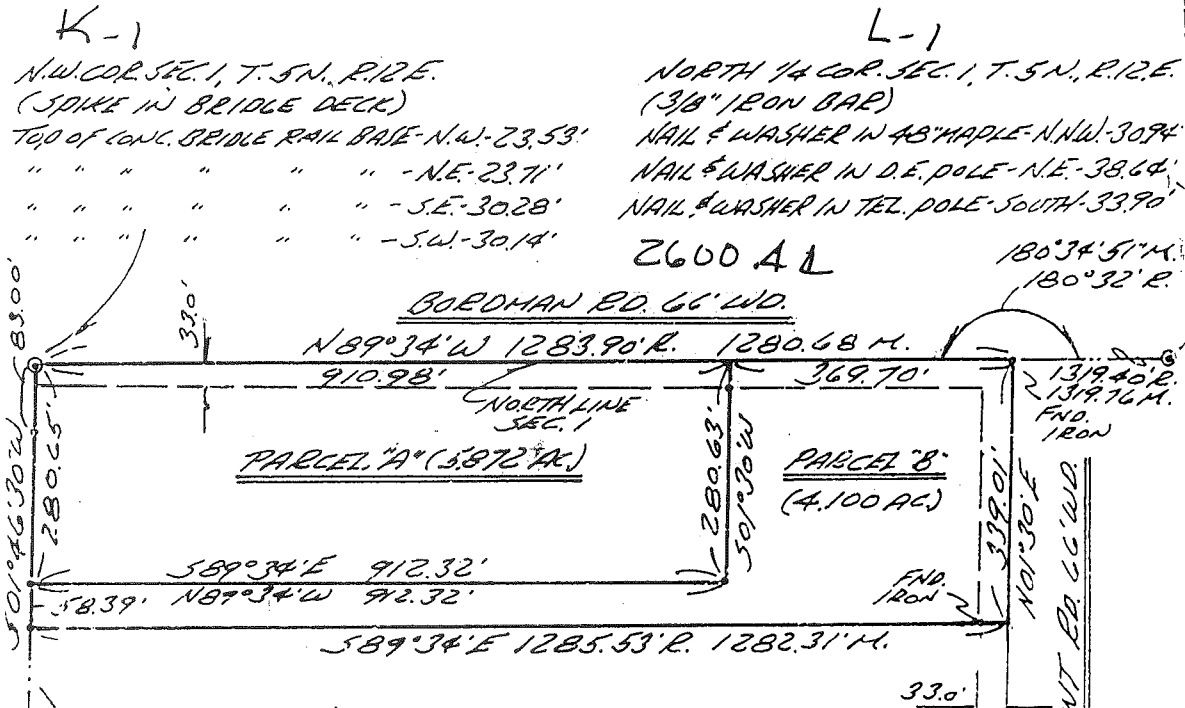 K-1
N.W. COR. SEC. 1, T. 5N., R. 12E.
(SPIKE IN BRIDGE DECK)
TOP OF CONC. BRIDGE RAIL BASE - N.W. - 23.53'
" " " " " " - N.E. - 23.71'
" " " " " " - S.E. - 30.28'
" " " " " " - S.W. - 30.14'
L-1
NORTH 1/4 COR. SEC. 1, T. 5N., R. 12.E.
(3/8" IRON BAR)
NAIL & WASHER IN 48" MAPLE - N.N.W. - 30.94'
NAIL & WASHER IN D.E. POLE - N.E. - 38.64'
NAIL & WASHER IN TEL. POLE - SOUTH - 33.90'
2600 A L
180°34'51" M.
180°32' R.
BORDMAN RD. 66' WD.
83.00'
33.0'
N89°34'W 1283.90' R. 1280.68 M.
910.98'
369.70'
1319.40' R.
1319.76 M.
FND.
IRON
NORTH LINE
SEC. 1
S01°46'30"W
280.65'
PARCEL "A" (5.872 AC)
280.63'
S01°30'W
PARCEL "B"
(4.100 AC.)
339.01'
N01°30'E
S89°34'E 912.32'
N89°34'W 912.32'
58.39'
FND.
IRON
S89°34'E 1285.53' R. 1282.31' M.
NT RD. 66' WD.
33.0'